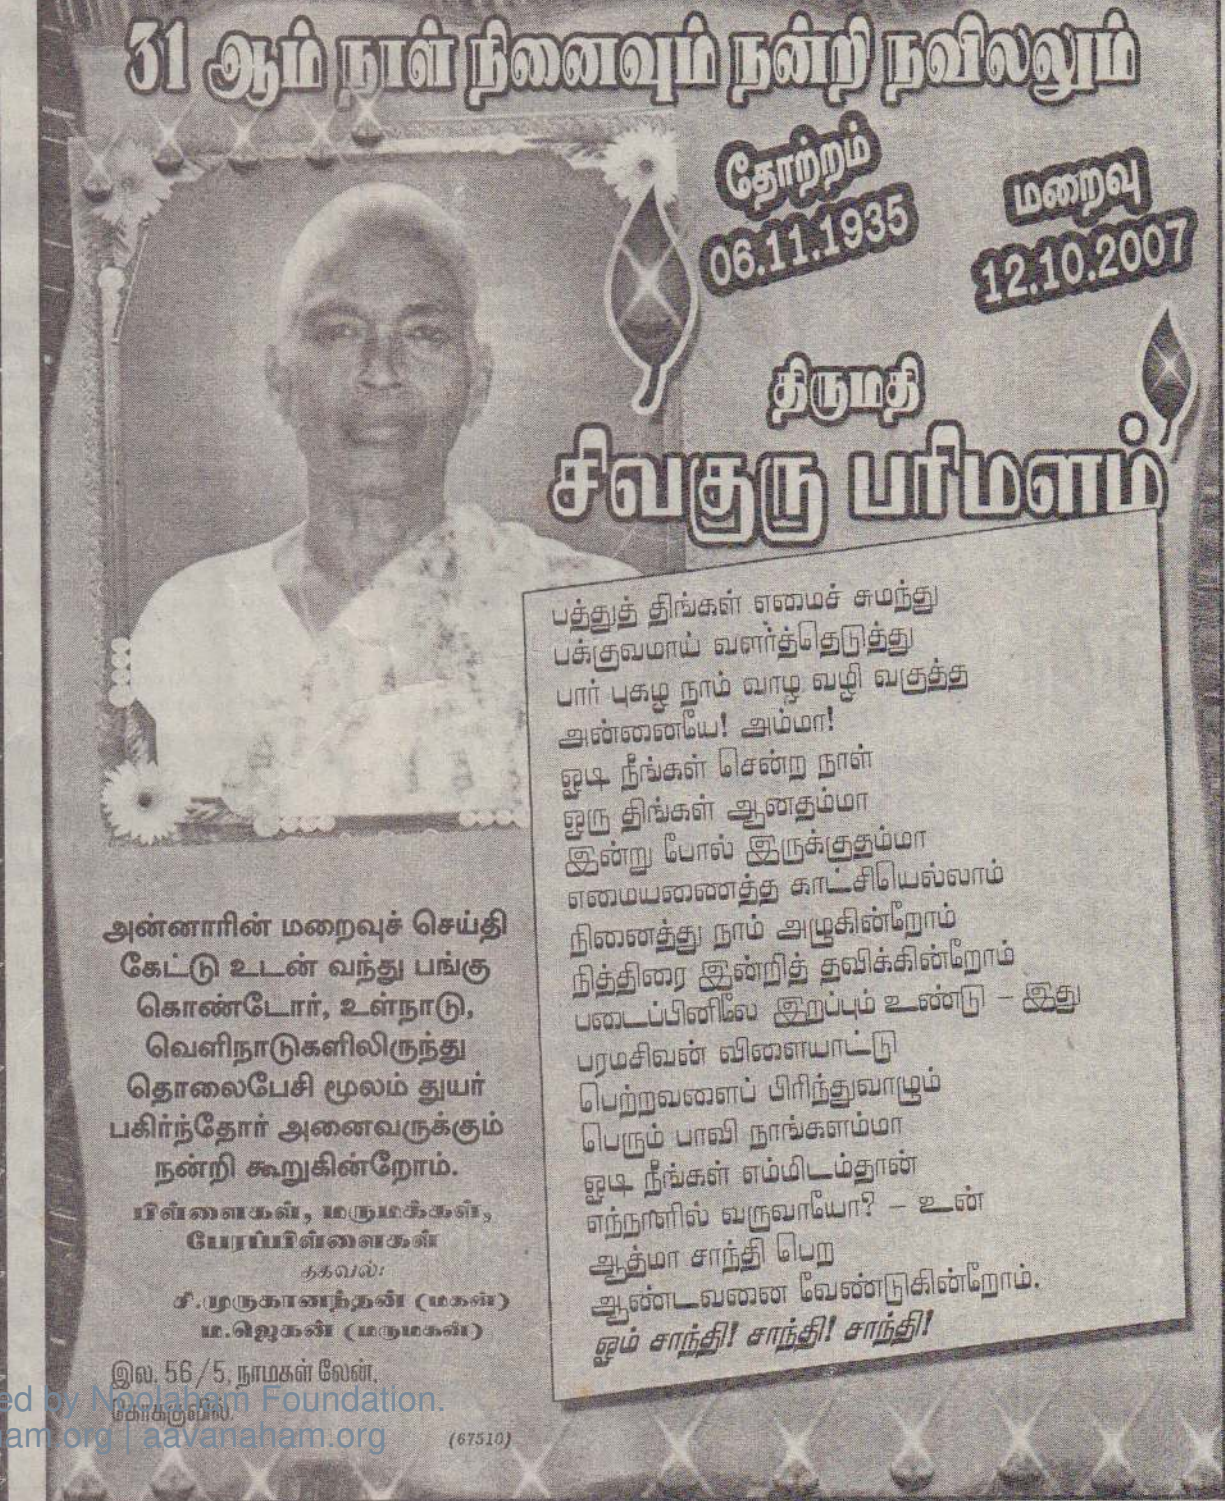 31 ஆம் நாள் நினைவும் நன்றி நவிலலும்
தோற்றம்
06.11.1935
மறைவு
12.10.2007
திருமதி
சிவகுரு பரிமளம்
பத்துத் திங்கள் எமைச் சுமந்து
பக்குவமாய் வளர்த்தெடுத்து
பார் புகழ நாம் வாழ வழி வகுத்த
அன்னையே! அம்மா!
ஓடி நீங்கள் சென்ற நாள்
ஒரு திங்கள் ஆனதம்மா
இன்று போல் இருக்குதம்மா
எமையணைத்த காட்சியெல்லாம்
நினைத்து நாம் அழுகின்றோம்
நித்திரை இன்றித் தவிக்கின்றோம்
படைப்பினிலே இறப்பும் உண்டு – இது
பரமசிவன் விளையாட்டு
பெற்றவளைப் பிரிந்துவாழும்
பெரும் பாவி நாங்களம்மா
ஓடி நீங்கள் எம்மிடம்தான்
எந்நாளில் வருவாயோ? – உன்
ஆத்மா சாந்தி பெற
ஆண்டவனை வேண்டுகின்றோம்.
ஓம் சாந்தி! சாந்தி! சாந்தி!
அன்னாரின் மறைவுச் செய்தி
கேட்டு உடன் வந்து பங்கு
கொண்டோர், உள்நாடு,
வெளிநாடுகளிலிருந்து
தொலைபேசி மூலம் துயர்
பகிர்ந்தோர் அனைவருக்கும்
நன்றி கூறுகின்றோம்.
பிள்ளைகள், மருமக்கள்,
பேரப்பிள்ளைகள்
தகவல்:
சி.முருகானந்தன் (மகன்)
ம.ஜெகன் (மருமகன்)
இல. 56/5, நாமகள் லேன்,
கோக்குவில்.
(67510)
ed by Noolaham Foundation.
am.org | aavanaham.org